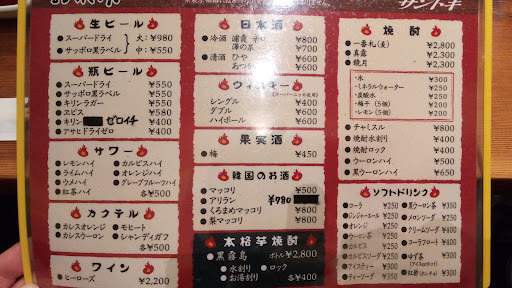 サントキ
生ビール
●スーパードライ
●サッポロ黒ラベル
大:¥980
中:¥550
瓶ビール
●スーパードライ ¥550
●サッポロ黒ラベル ¥550
●キリンラガー ¥550
●ヱビス ¥580
●キリン ゼロイチ ¥400
●アサヒドライゼロ ¥400
サワー
●レモンハイ ●カルピスハイ
●ライムハイ ●オレンジハイ
●ウメハイ ●グレープフルーツハイ
●紅茶ハイ 各¥500
カクテル
●カシスオレンジ ●モヒート
●カシスウーロン ●シャンディガフ
各¥500
ワイン
●ヒーローズ ¥2,200
日本酒
●冷酒 浦霞 辛口 ¥800
澤の泉 ¥700
●清酒 ひや ¥500
あつかん
ウイスキー
(スーパーニッカ使用)
シングル ¥400
ダブル ¥600
ハイボール ¥600
果実酒
●梅 ¥450
韓国のお酒
●マッコリ ¥500
●アリラン ¥780
●くろまめマッコリ ¥500
●梨マッコリ ¥500
本格芋焼酎
●黒霧島 ボトル¥2,800
●水割り ●ロック
●お湯割り 各¥400
焼酎
●一番札(麦) ¥2,800
●真露 ¥2,300
●鏡月 ¥2,300
・氷 ¥300
・ミネラルウォーター ¥250
・炭酸水 ¥250
・梅干(5個) ¥200
・レモン(5個) ¥200
●チャミスル ¥800
●焼酎水割り ¥400
●焼酎ロック ¥400
●ウーロンハイ ¥500
●黒ウーロンハイ ¥650
ソフトドリンク
●コーラ ¥250
●ジンジャーエール ¥250
●オレンジ ¥250
●ウーロン茶 ¥250
●カルピス ¥250
●カルピスソーダ ¥250
●アイスティー ¥250
●ティーソーダ ¥250
●黒ウーロン茶 ¥350
●メロンソーダ ¥250
●クリームソーダ ¥400
●コーラフロート ¥400
●ゆず茶 ¥350
(アイスorホット)
●紅茶(ホット) ¥300